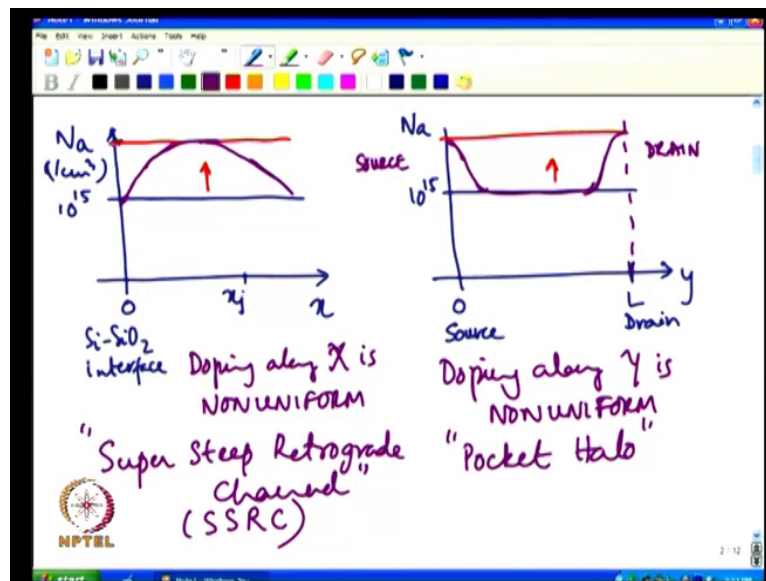 Note1 - Windows Journal
File Edit View Insert Actions Tools Help
B I
Na
(/cm³)
10¹⁵
0
xj
x
Si-SiO₂
interface
Doping along X is
NONUNIFORM
"Super Steep Retrograde
Channel"
(SSRC)
Na
SOURCE
DRAIN
10¹⁵
0
L
y
Source
Drain
Doping along Y is
NONUNIFORM
"Pocket Halo"
NPTEL
2 / 12
start